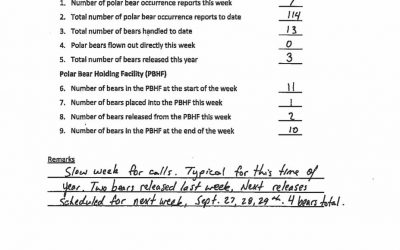 1. Number of polar bear occurrence reports this week 7
2. Total number of polar bear occurrence reports to date 114
3. Total number of bears handled to date 13
4. Polar bears flown out directly this week 0
5. Total number of bears released this year 3
Polar Bear Holding Facility (PBHF)
6. Number of bears in the PBHF at the start of the week 11
7. Number of bears placed into the PBHF this week 1
8. Number of bears released from the PBHF this week 2
9. Number of bears in the PBHF at the end of the week 10
Remarks
Slow week for calls. Typical for this time of
year. Two bears released last week. Next releases
scheduled for next week, Sept. 27, 28, 29th. 4 bears total.